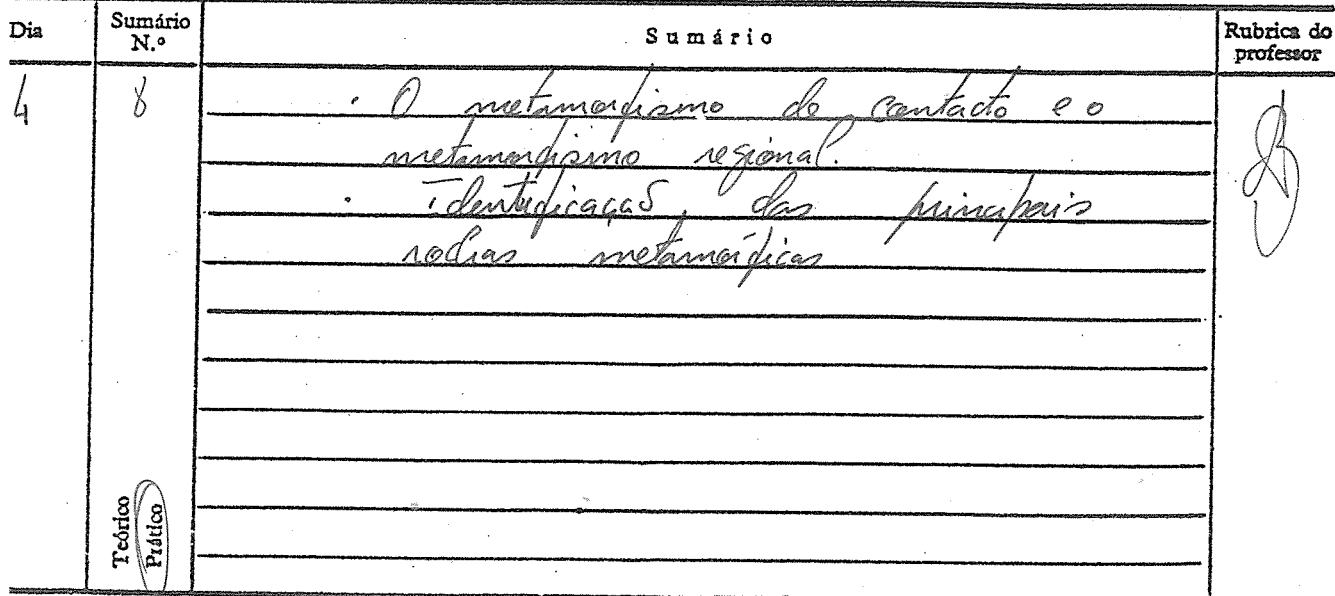 Dia
Sumário
N.º
Sumário
Rubrica do
professor
4
8
· O metamorfismo de contacto e o
metamorfismo regional.
· Identificação das principais
rochas metamórficas
Teórico
Prático